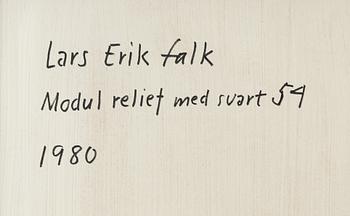 Lars Erik falk
Modul relief med svart 54
1980